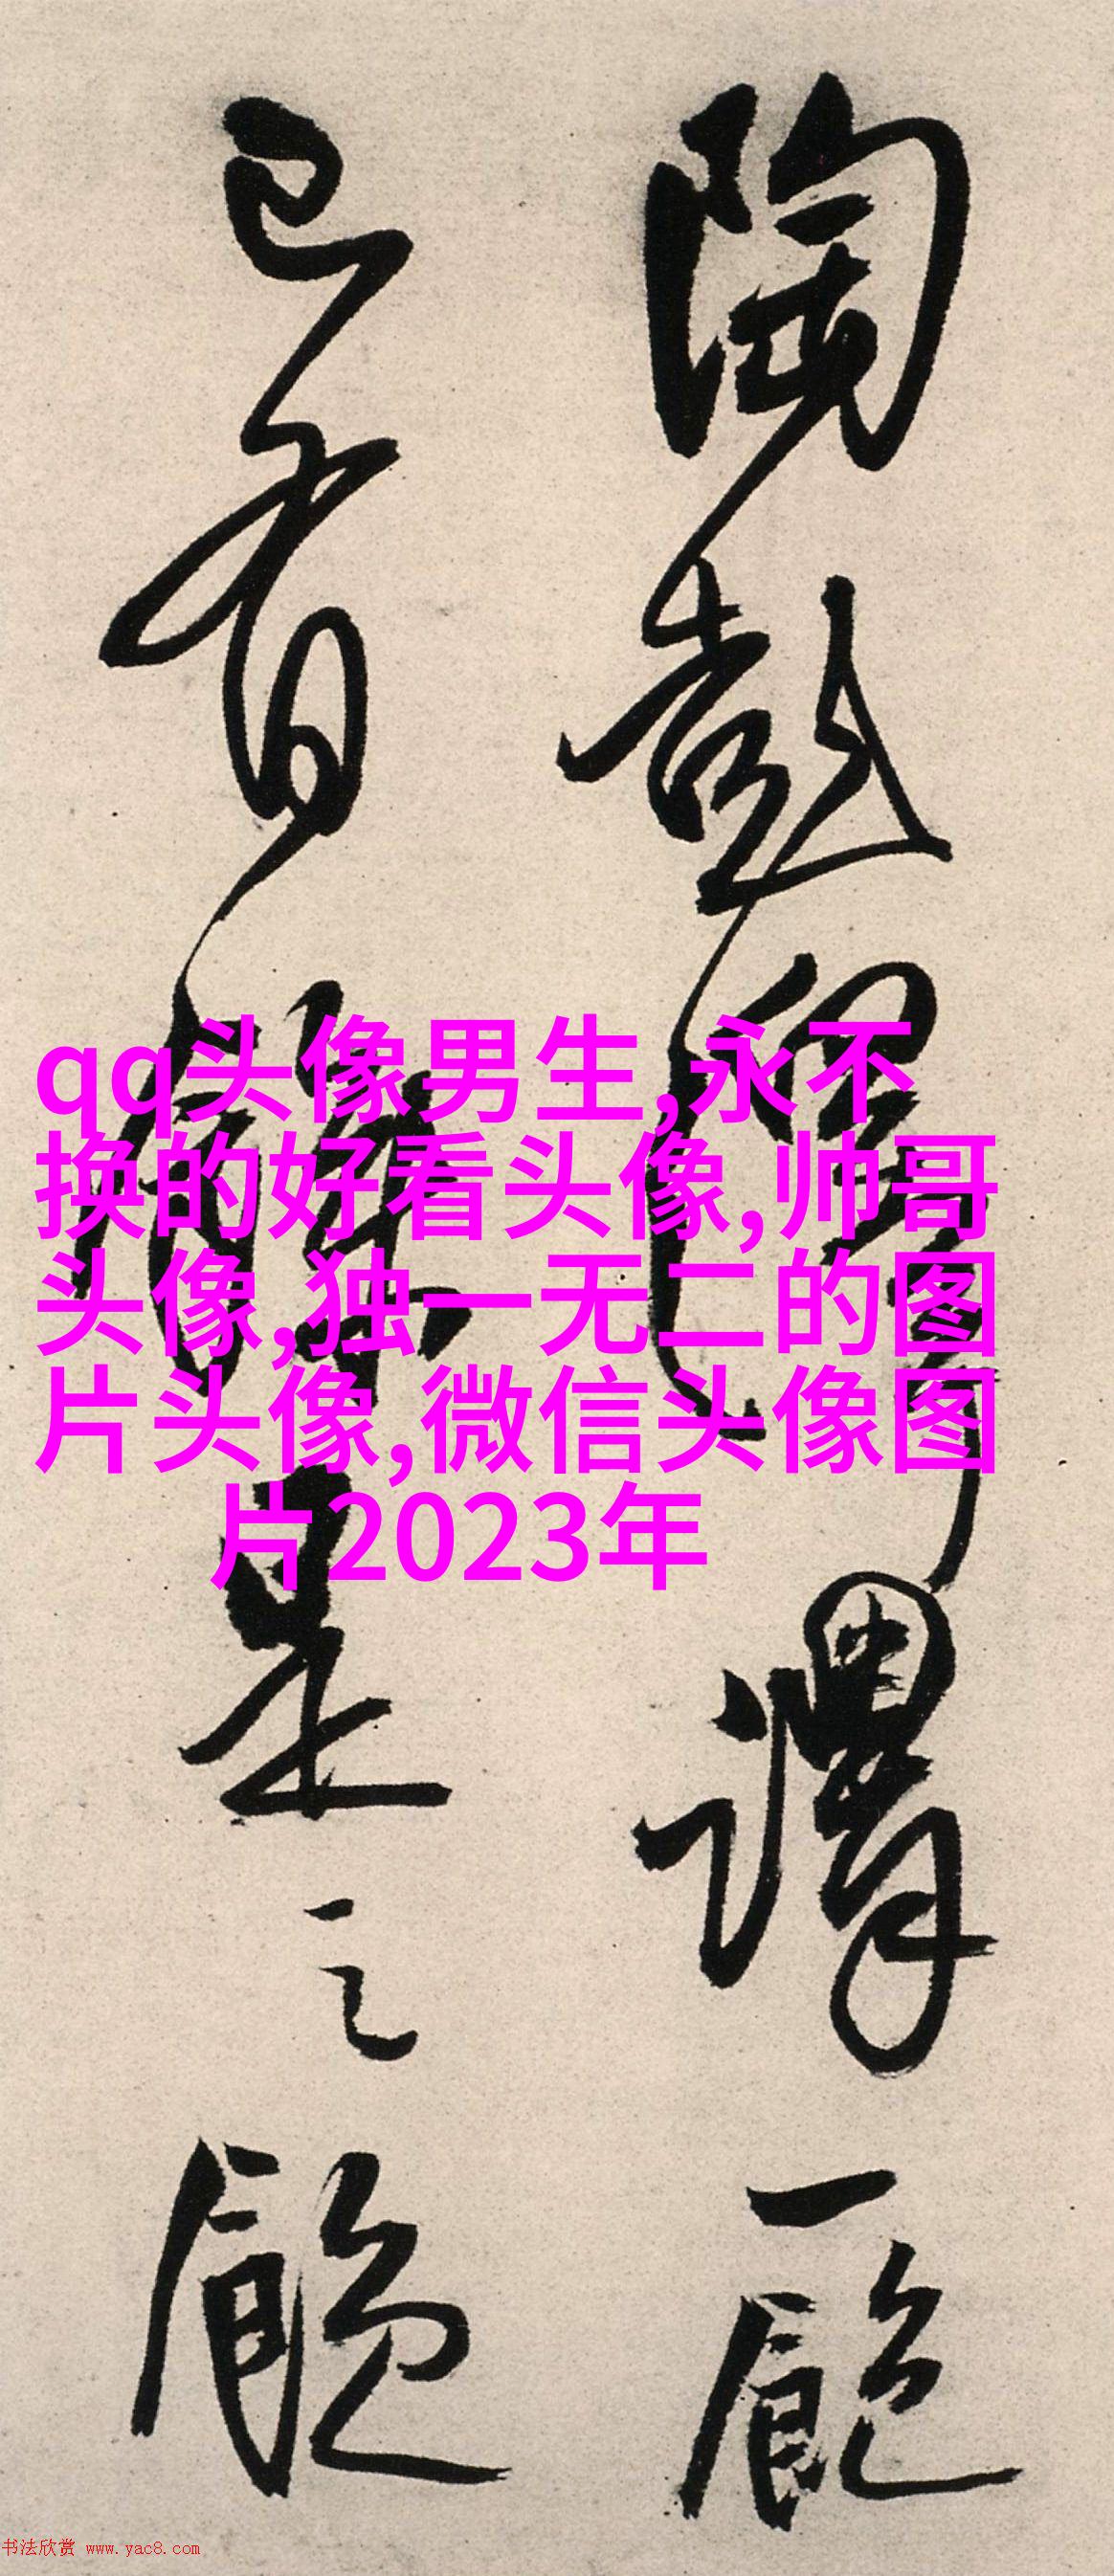 陶彭澤謂一飽
已有餘是之
qq头像男生,永不
换的好看头像,帅哥
头像,独一无二的图
片头像,微信头像图
片2023年
书法欣赏 www.yac8.com